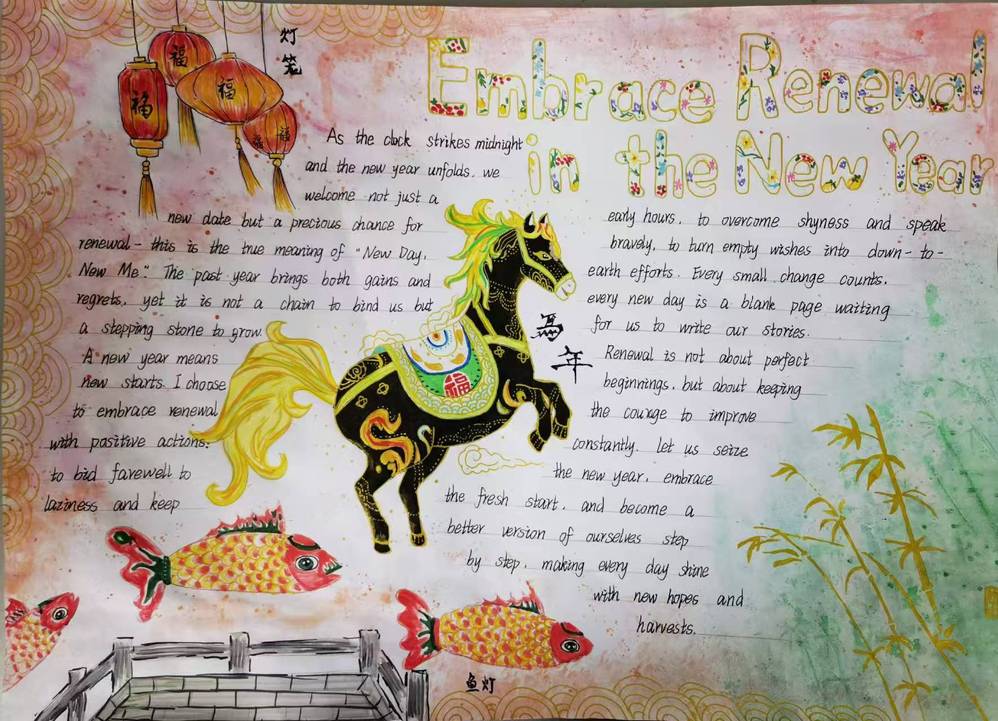 灯笼
福
福
福
福
福
Embrace Renewal
in the New Year
As the clock strikes midnight
and the new year unfolds, we
welcome not just a
new date but a precious chance for
renewal - this is the true meaning of "New Day,
New Me." The past year brings both gains and
regrets, yet it is not a chain to bind us but
a stepping stone to grow.
A new year means
new starts. I choose
to embrace renewal
with positive actions:
to bid farewell to
laziness and keep
early hours, to overcome shyness and speak
bravely, to turn empty wishes into down-to-
earth efforts. Every small change counts,
every new day is a blank page waiting
for us to write our stories.
Renewal is not about perfect
beginnings, but about keeping
the courage to improve
constantly. Let us seize
the new year, embrace
the fresh start, and become a
better version of ourselves step
by step, making every day shine
with new hopes and
harvests.
馬年
福
鱼灯